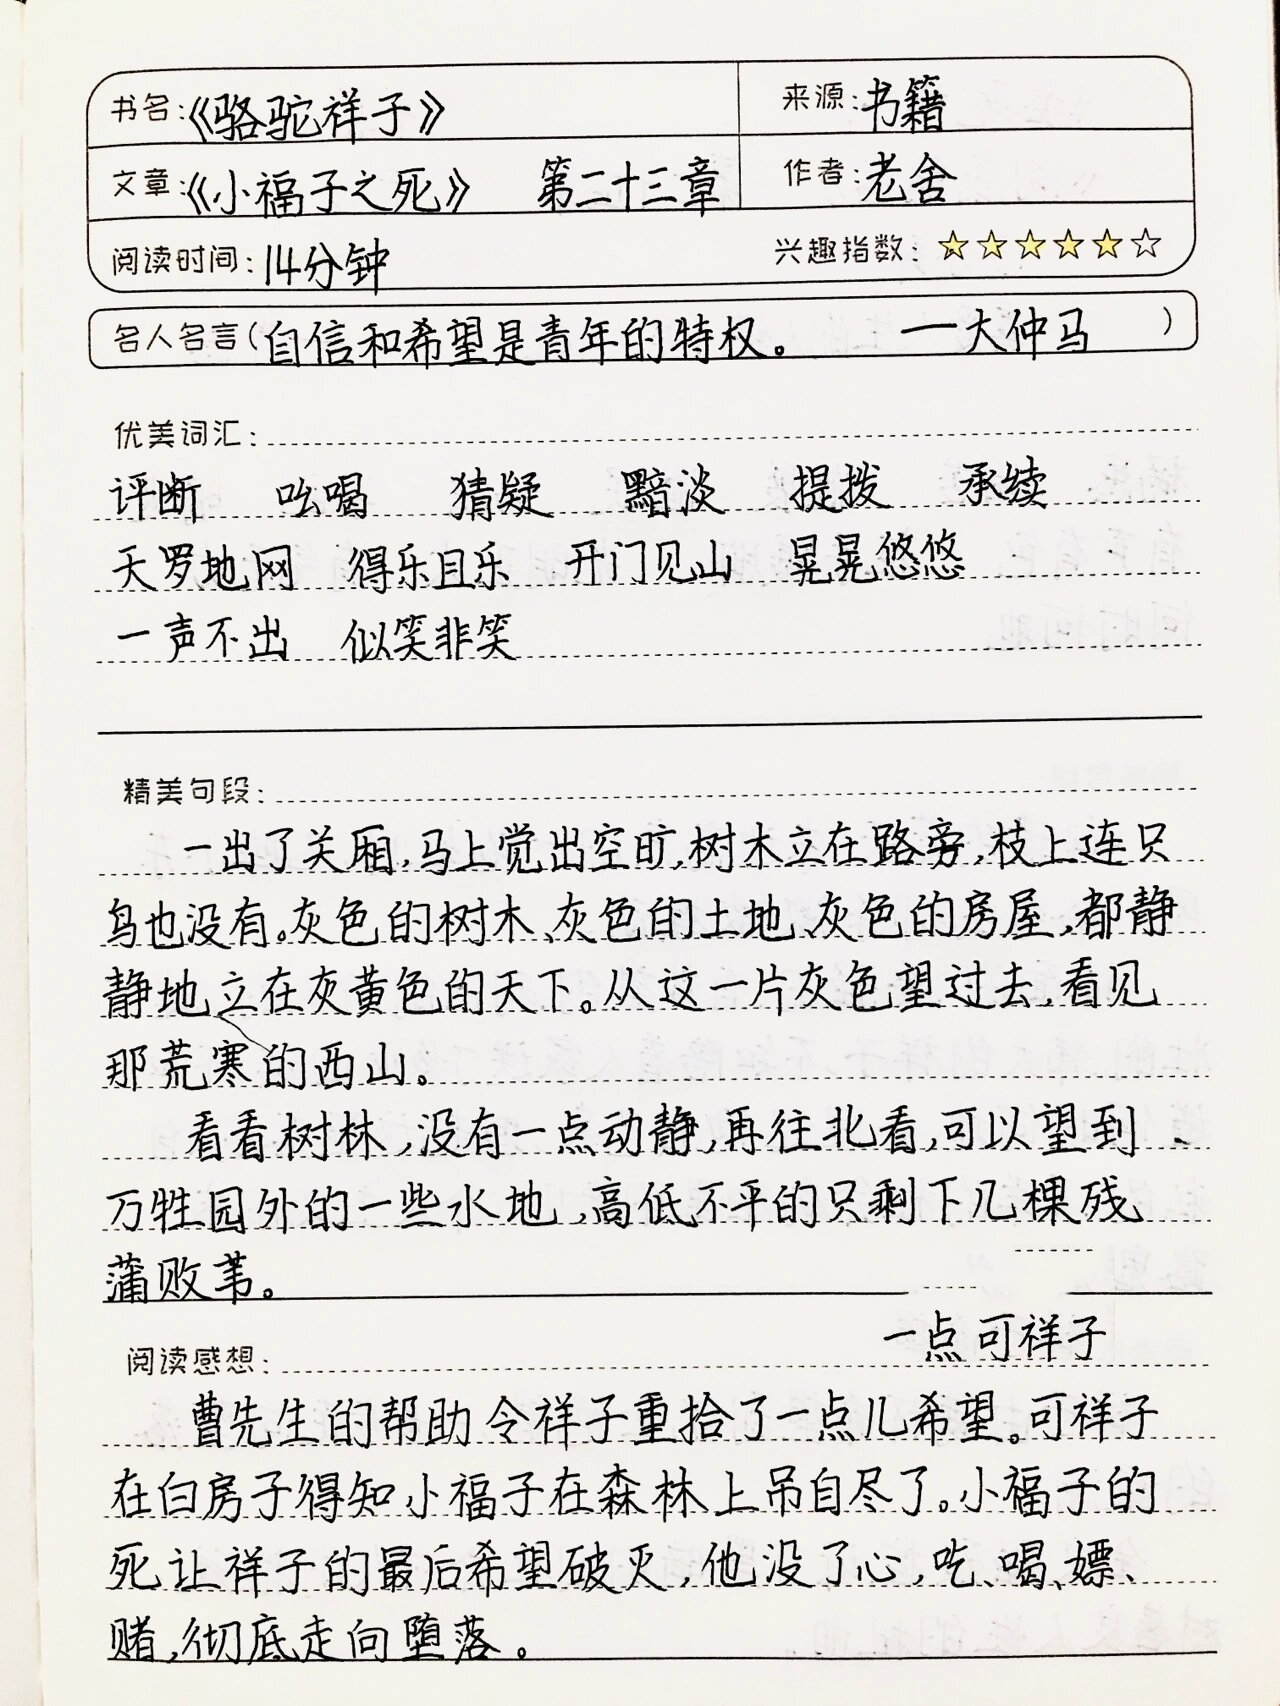 书名:《骆驼祥子》 来源:书籍
文章:《小福子之死》 第二十三章 作者:老舍
阅读时间:14分钟 兴趣指数:★★★★★☆
名人名言(自信和希望是青年的特权。 —大仲马 )
优美词汇:
评断 吆喝 猜疑 黯淡 提拨 承续
天罗地网 得乐且乐 开门见山 晃晃悠悠
一声不出 似笑非笑
精美句段:
一出了关厢,马上觉出空旷,树木立在路旁,枝上连只
鸟也没有。灰色的树木、灰色的土地、灰色的房屋,都静
静地立在灰黄色的天下。从这一片灰色望过去,看见
那荒寒的西山。
看看树林,没有一点动静,再往北看,可以望到
万牲园外的一些水地,高低不平的只剩下几棵残
蒲败苇。
一点可祥子
阅读感想:
曹先生的帮助令祥子重拾了一点儿希望。可祥子
在白房子得知小福子在森林上吊自尽了。小福子的
死让祥子的最后希望破灭,他没了心,吃、喝、嫖、
赌,彻底走向堕落。